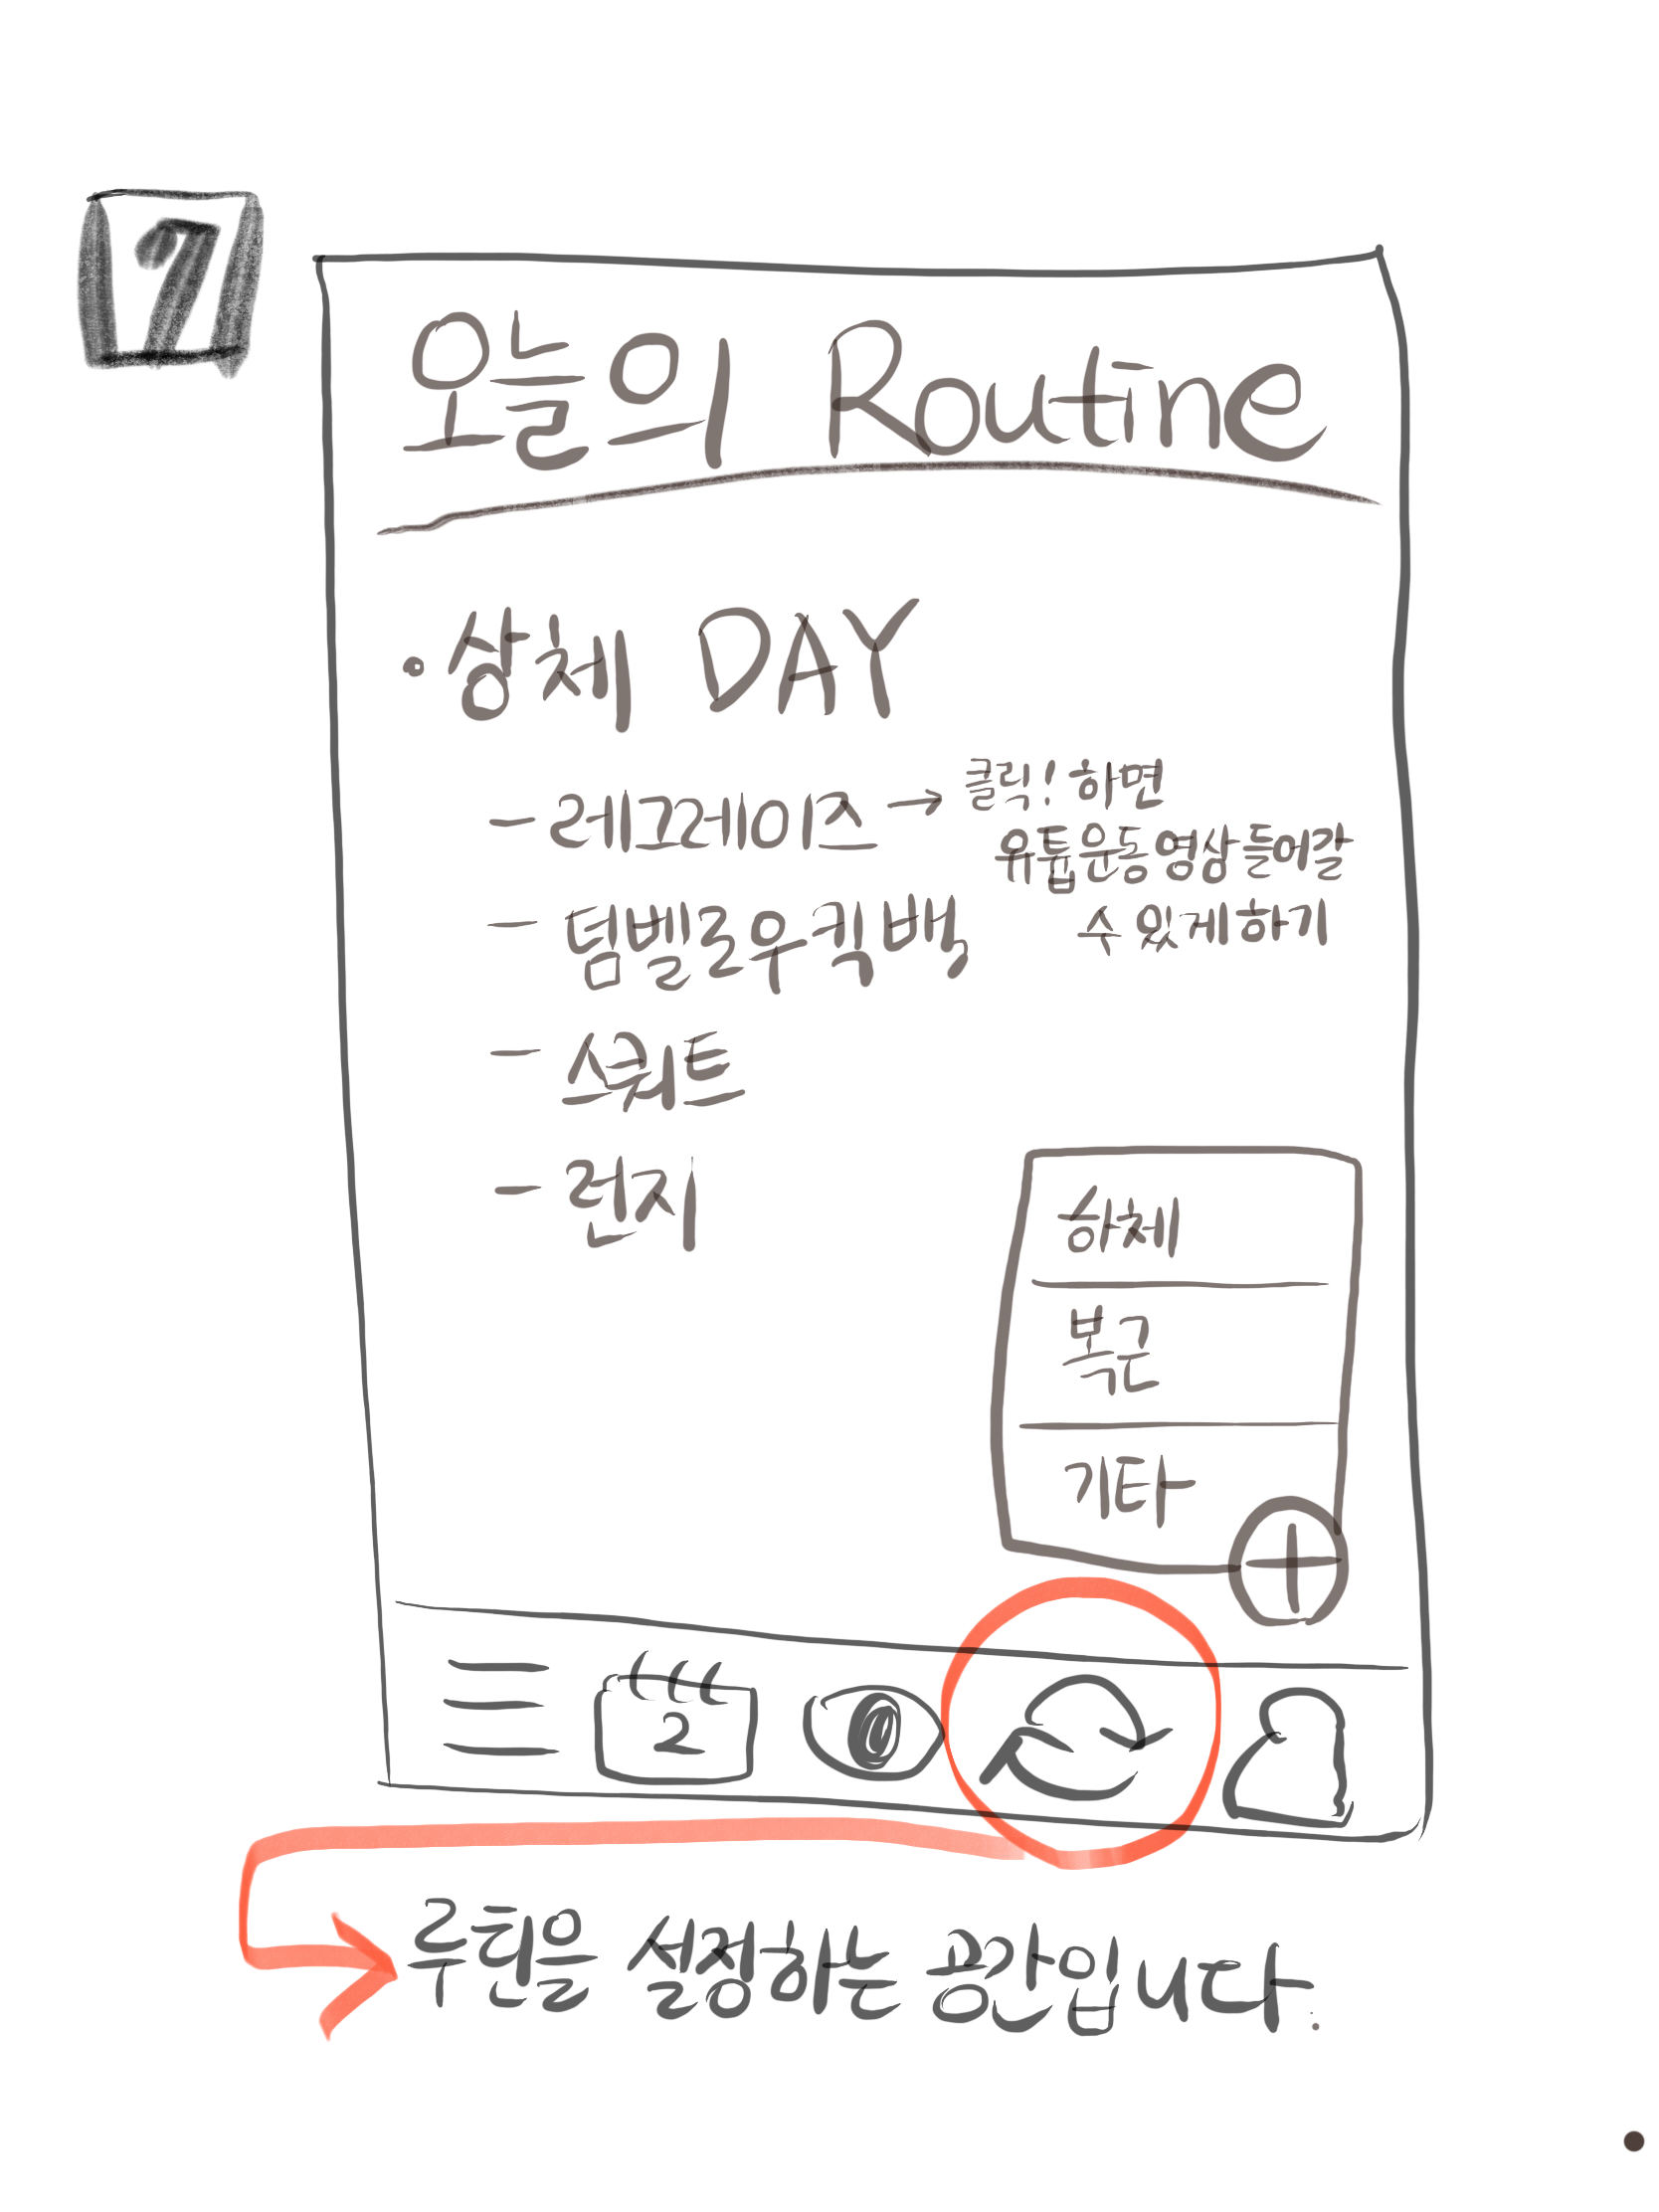 7
오늘의 Routine
· 상체 DAY
- 레그레이즈 → 클릭! 하면
유튭운동영상들어갈
수 있게하기
- 덤벨로우킥백
- 스쿼트
- 런지
하체
복근
기타
2
루틴을 설정하는 공간입니다.